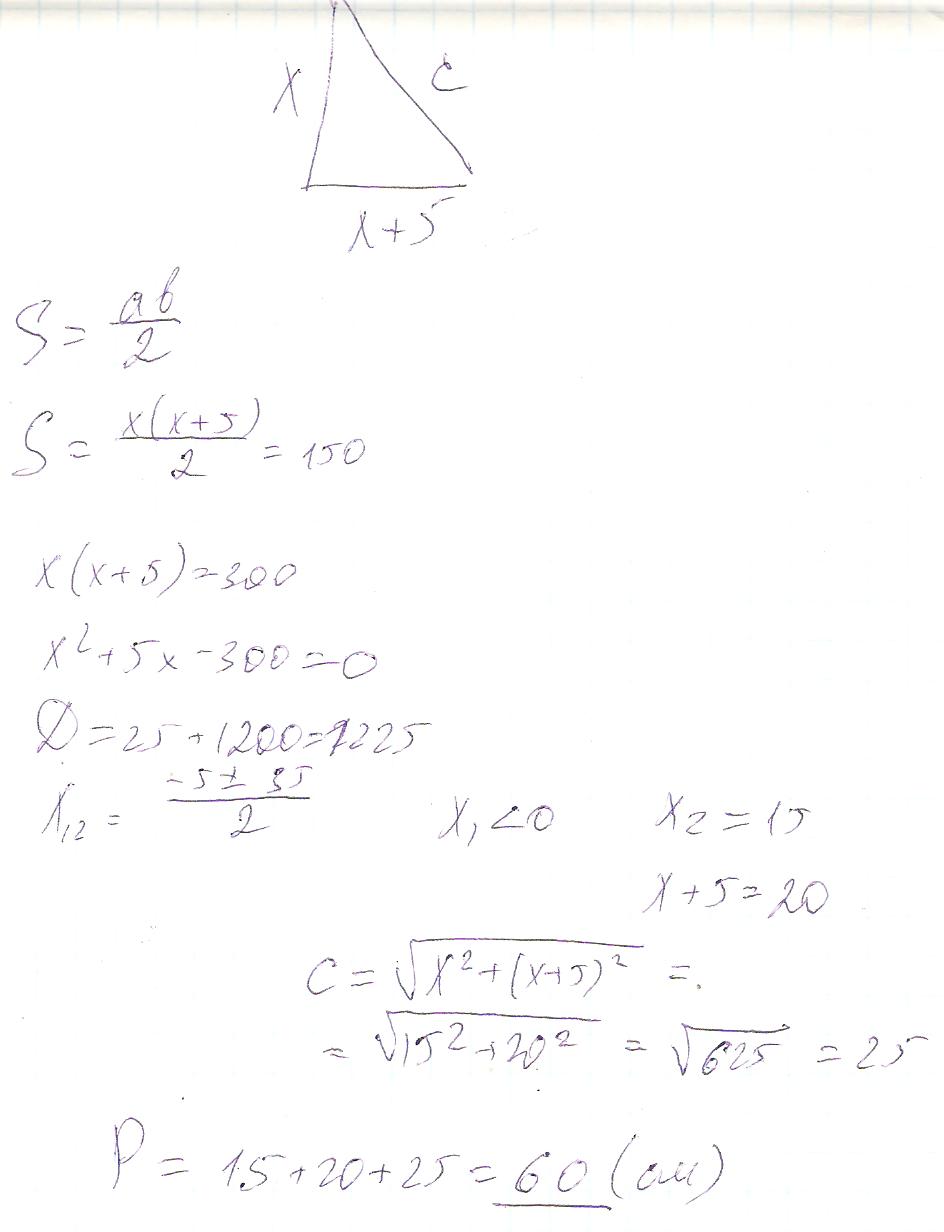 x
c
x+5
S = ab/2
S = x(x+5)/2 = 150
x(x+5)=300
x²+5x-300=0
D=25+1200=1225
x₁,₂ = (-5±35)/2   x₁<0   x₂=15
x+5=20
c = √(x²+(x+5)²) =
= √(15²+20²) = √625 = 25
P = 15+20+25=60 (см)